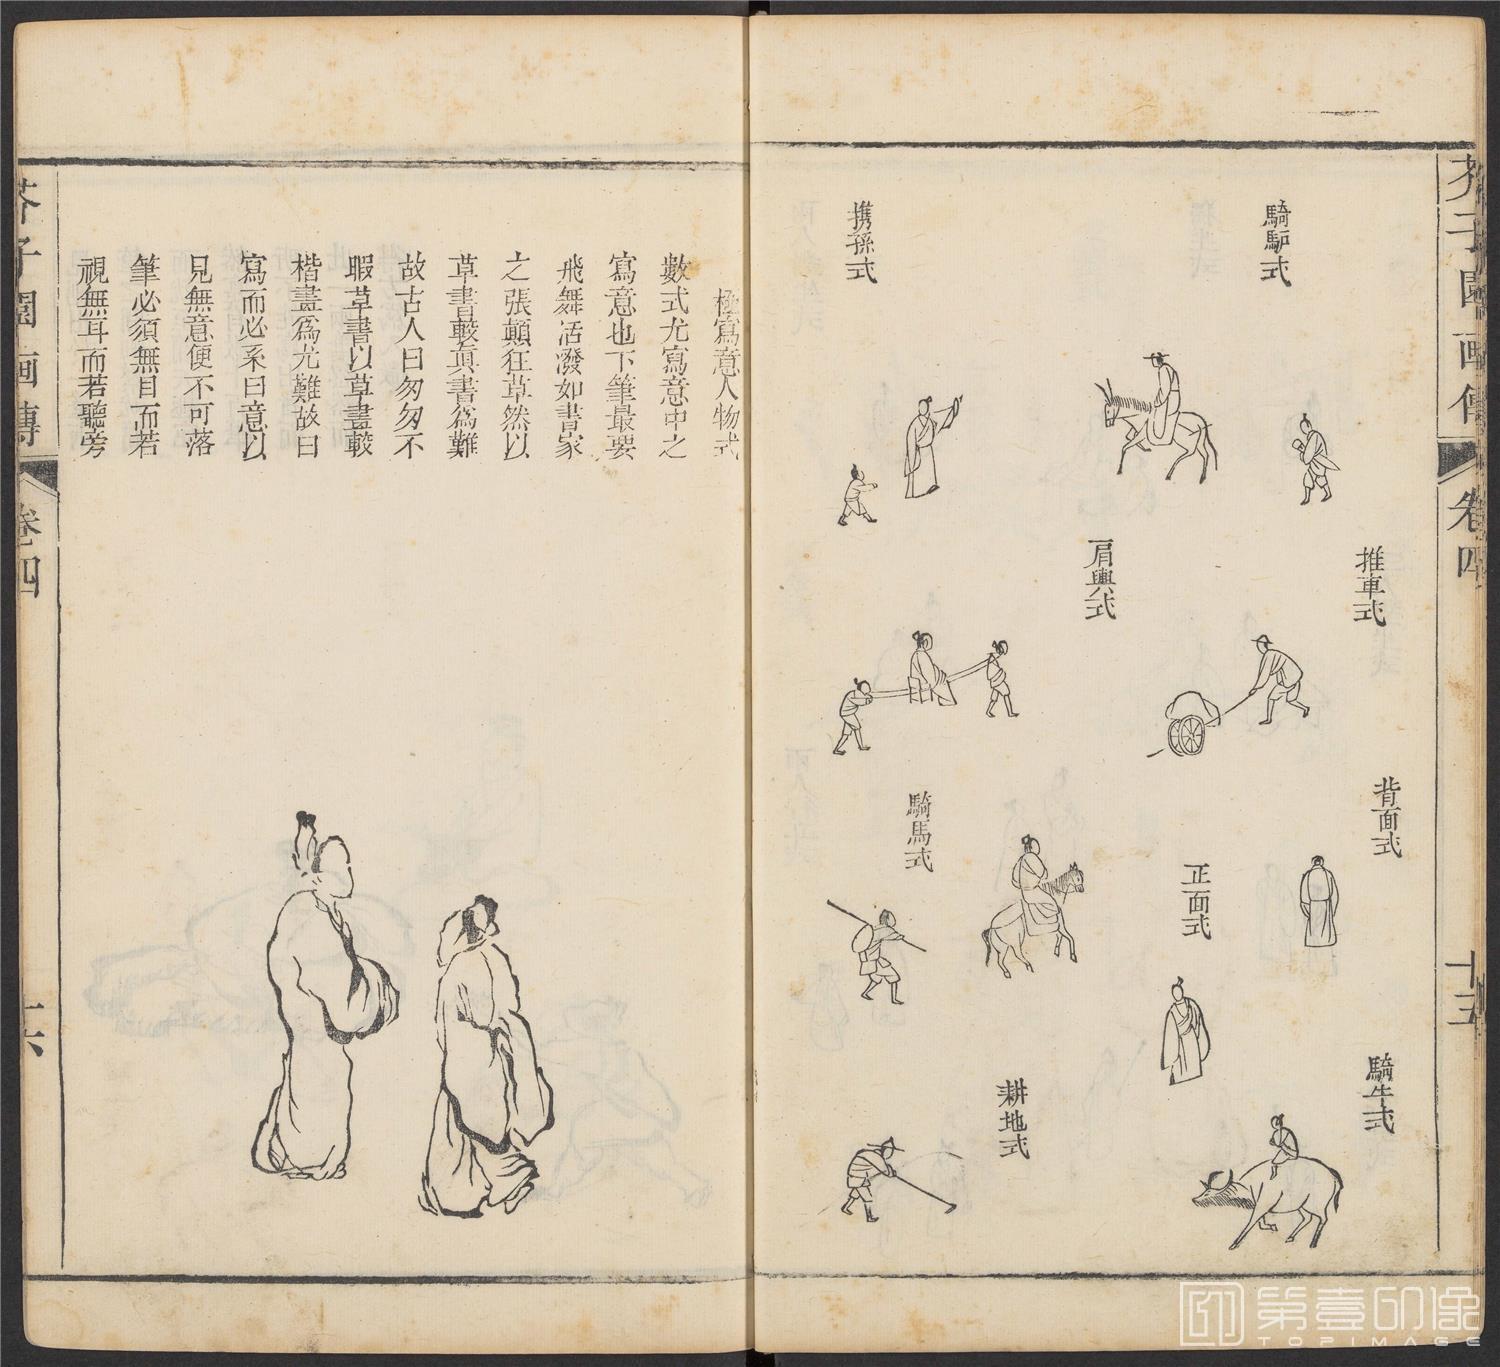 芥子園画傳
卷四
十五
騎馿式
携孫式
推車式
肩輿式
背面式
正面式
騎馬式
騎牛式
耕地式
極寫意人物式
數式尤寫意中之
寫意也下筆最要
飛舞活潑如書家
之張顛狂草然以
草書較眞書爲難
故古人曰匆匆不
暇草書以草畫較
楷畫爲尤難故曰
寫而必系曰意以
見無意便不可落
筆必須無目而若
視無耳而若聽旁
芥子園画傳
卷四
十六
第壹印像
TOPIMAGE